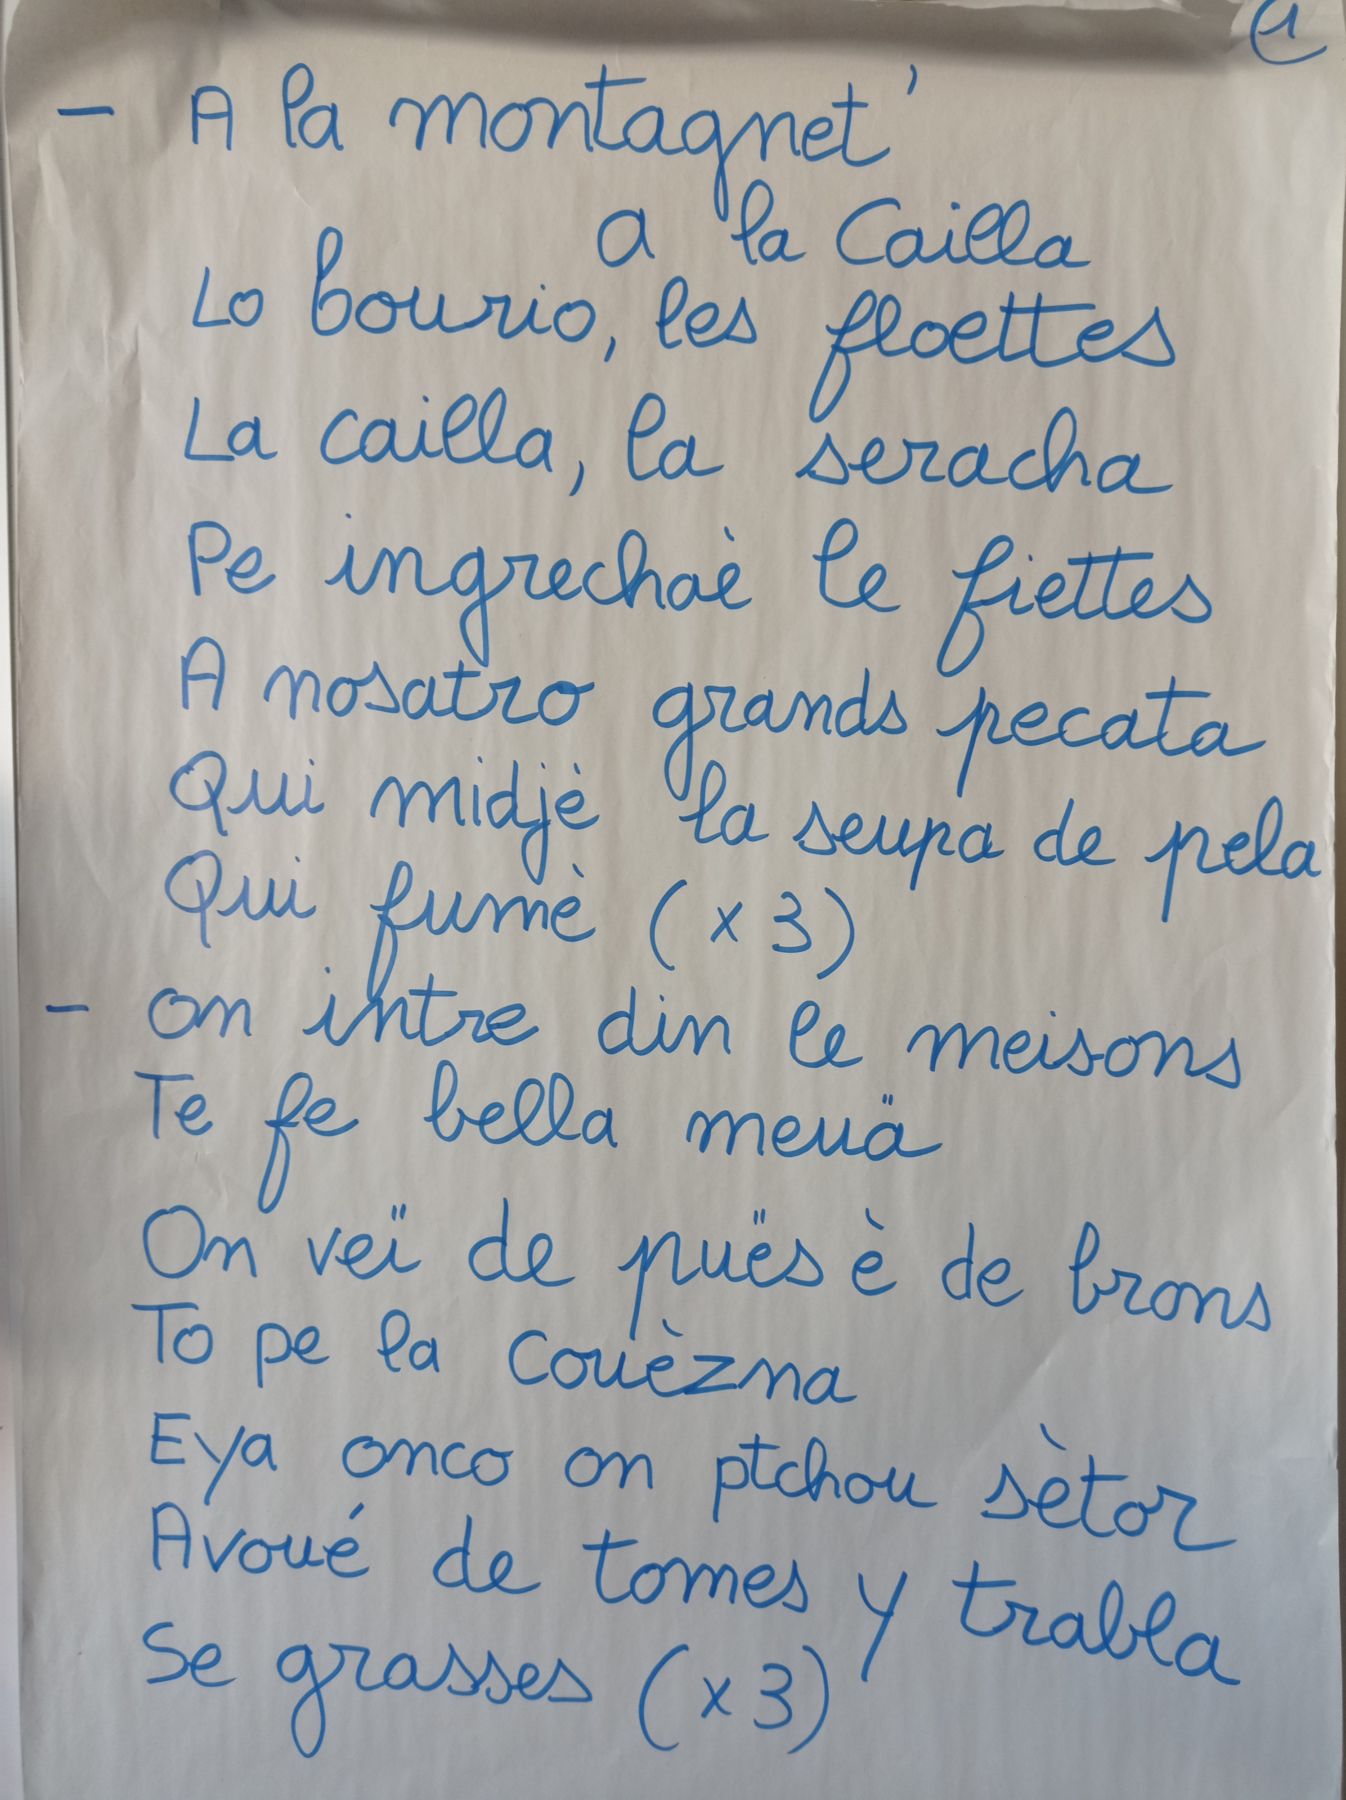 1
- A la montagnet'
a la Cailla
Lo bourio, les floettes
La cailla, la seracha
Pe ingrechaè le fiettes
A nosatro grands pecata
Qui midjè la seupa de pela
Qui fumè (x3)
- on intre din le meisons
Te fe bella meuä
On veï de puës è de brons
To pe la couèzna
Eya onco on ptchou sètor
Avoué de tomes y trabla
Se grasses (x3)